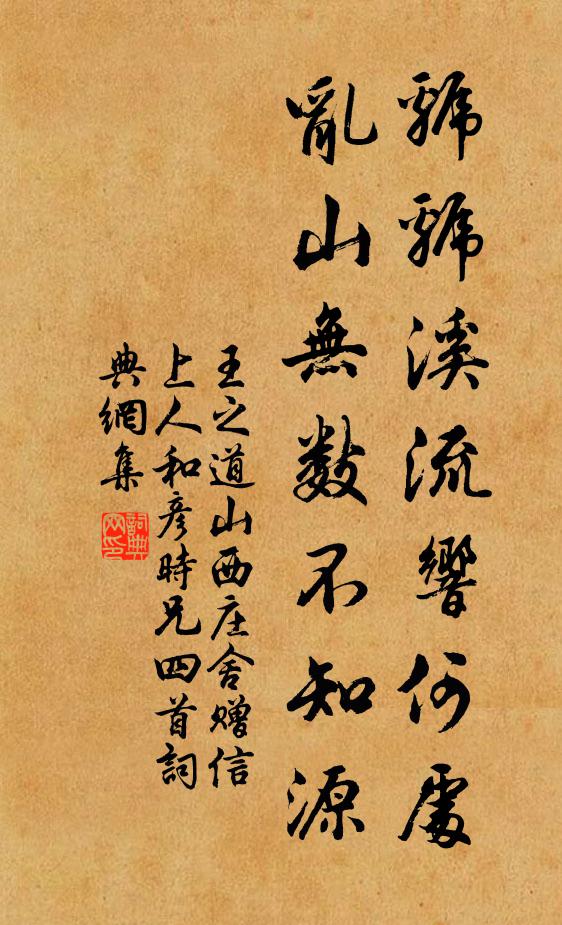 虢虢溪流響何處
亂山無數不知源
王之道山西庄舍贈信
上人和彦時兄四首詞
典網集
詞典
网印